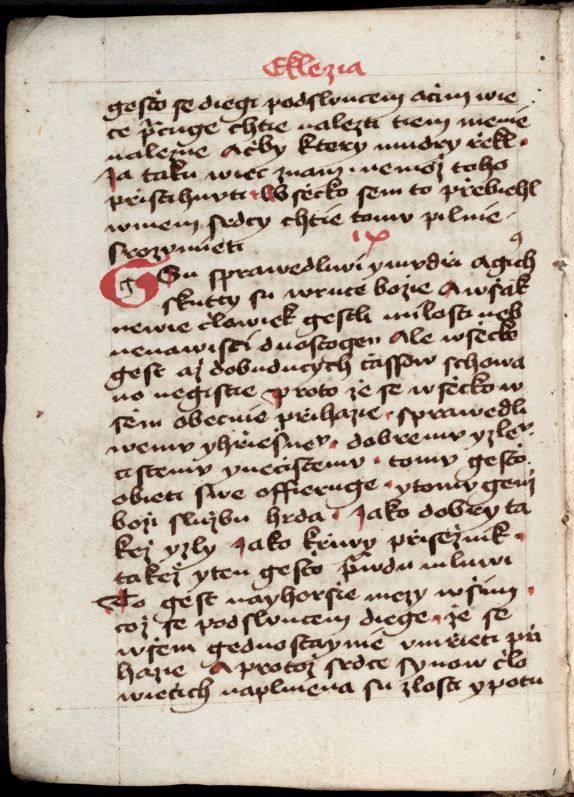 Ekklezia
gesto se diegi podsluncem a cim wie
ce p̃cuge chtie nalezti tiem menie
nalezne A cžby ktery mudry rzekl
Ja taku wiec znam nemoż toho
przistihnuti Wsecko sem to przebiehl
wmem srdcy chtie tomu pilnie
srozumieti
ix
Gsu sprawedliwi y mudrzi a gich
skutcy su wruce bozie A wssak
newie cżlowiek gestli milosti neb
nenawisti duostogen Ale wsecko
gest aż dobuducych cżassow schowa
no negistie Proto że se wsecko w
sem obecnie przihazie sprawedli
wemu y hrziesnemu dobremu y zlemu
cistemu y necistemu tomu gesto
obieti swe offieruge y tomu genż
bozi sluzbu hrda Jako dobry ta
keż y zly Jako krziwy przisezník
takeż y ten gesto p̃wdu mluwi
To gest nayhorsie mezy wssim
coż se podsluncem diege że se
wsem gednostaynie umrzieti przi
hazie A protoż srdce synow cżlo
wiecich naplnena su zlosti y potu